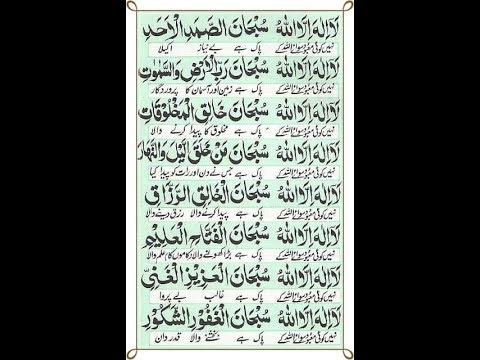 لَا اِلٰهَ اِلَّا اللهُ سُبْحَانَ الصَّمَدِ الْاَحَدِ
نہیں کوئی معبود سوائے اللہ کے پاک ہے بے نیاز اکیلا
لَا اِلٰهَ اِلَّا اللهُ سُبْحَانَ رَبِّ الْاَرْضِ وَالسَّمٰوٰتِ
نہیں کوئی معبود سوائے اللہ کے پاک ہے زمین اور آسمان کا پروردگار
لَا اِلٰهَ اِلَّا اللهُ سُبْحَانَ خَالِقِ الْمَخْلُوْقَاتِ
نہیں کوئی معبود سوائے اللہ کے پاک ہے مخلوق کا پیدا کرنے والا
لَا اِلٰهَ اِلَّا اللهُ سُبْحَانَ مَنْ خَلَقَ الَّيْلَ وَالنَّهَارَ
نہیں کوئی معبود سوائے اللہ کے پاک ہے جس نے دن اور رات کو پیدا کیا
لَا اِلٰهَ اِلَّا اللهُ سُبْحَانَ الْخَالِقِ الرَّزَّاقِ
نہیں کوئی معبود سوائے اللہ کے پاک ہے پیدا کرنے والا رزق دینے والا
لَا اِلٰهَ اِلَّا اللهُ سُبْحَانَ الْفَتَّاحِ الْعَلِيْمِ
نہیں کوئی معبود سوائے اللہ کے پاک ہے بڑا کھولنے والا کاموں کا علم والا
لَا اِلٰهَ اِلَّا اللهُ سُبْحَانَ الْعَزِيْزِ الْغَنِيِّ
نہیں کوئی معبود سوائے اللہ کے پاک ہے غالب بے پروا
لَا اِلٰهَ اِلَّا اللهُ سُبْحَانَ الْغَفُوْرِ الشَّكُوْرِ
نہیں کوئی معبود سوائے اللہ کے پاک ہے بخشنے والا قدردان